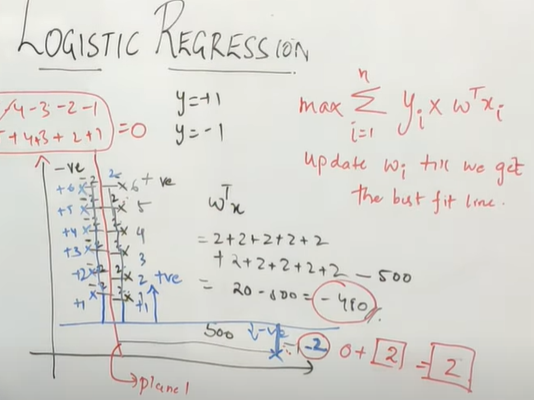 LOGISTIC REGRESSION
-4-3-2-1
+4+3+2+1 =0
y=+1
y=-1
max n Σ i=1 yi x wTxi
update wi till we get
the best fit line.
-ve
+ve
+6 x 2 2 x 6
+5 x 2 2 x 5
+4 x 2 2 x 4
+3 x 2 2 x 3
+2 x 2 2 x 2
+1 x 2 2 x +1
+ve
wTx
= 2+2+2+2+2
+ 2+2+2+2+2 - 500
= 20-500 = -480
500
-ve
-2
0+ 2 = 2
plane 1